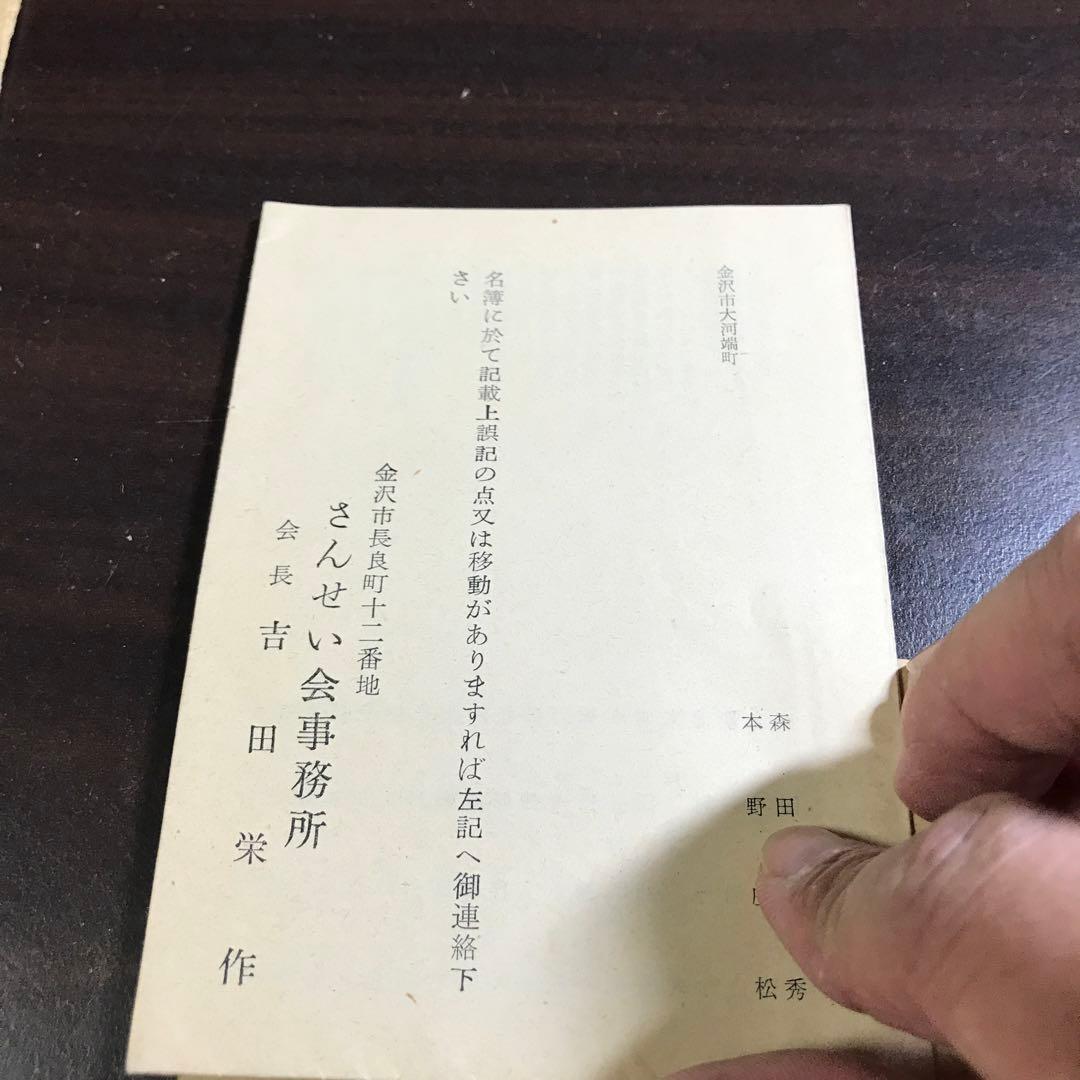 森田 秀
金沢市大河端町 本野 松
名簿に於て記載上誤記の点又は移動がありますれば左記へ御連絡下
さい
金沢市長良町十二番地
さんせい会事務所
会長 吉田栄作